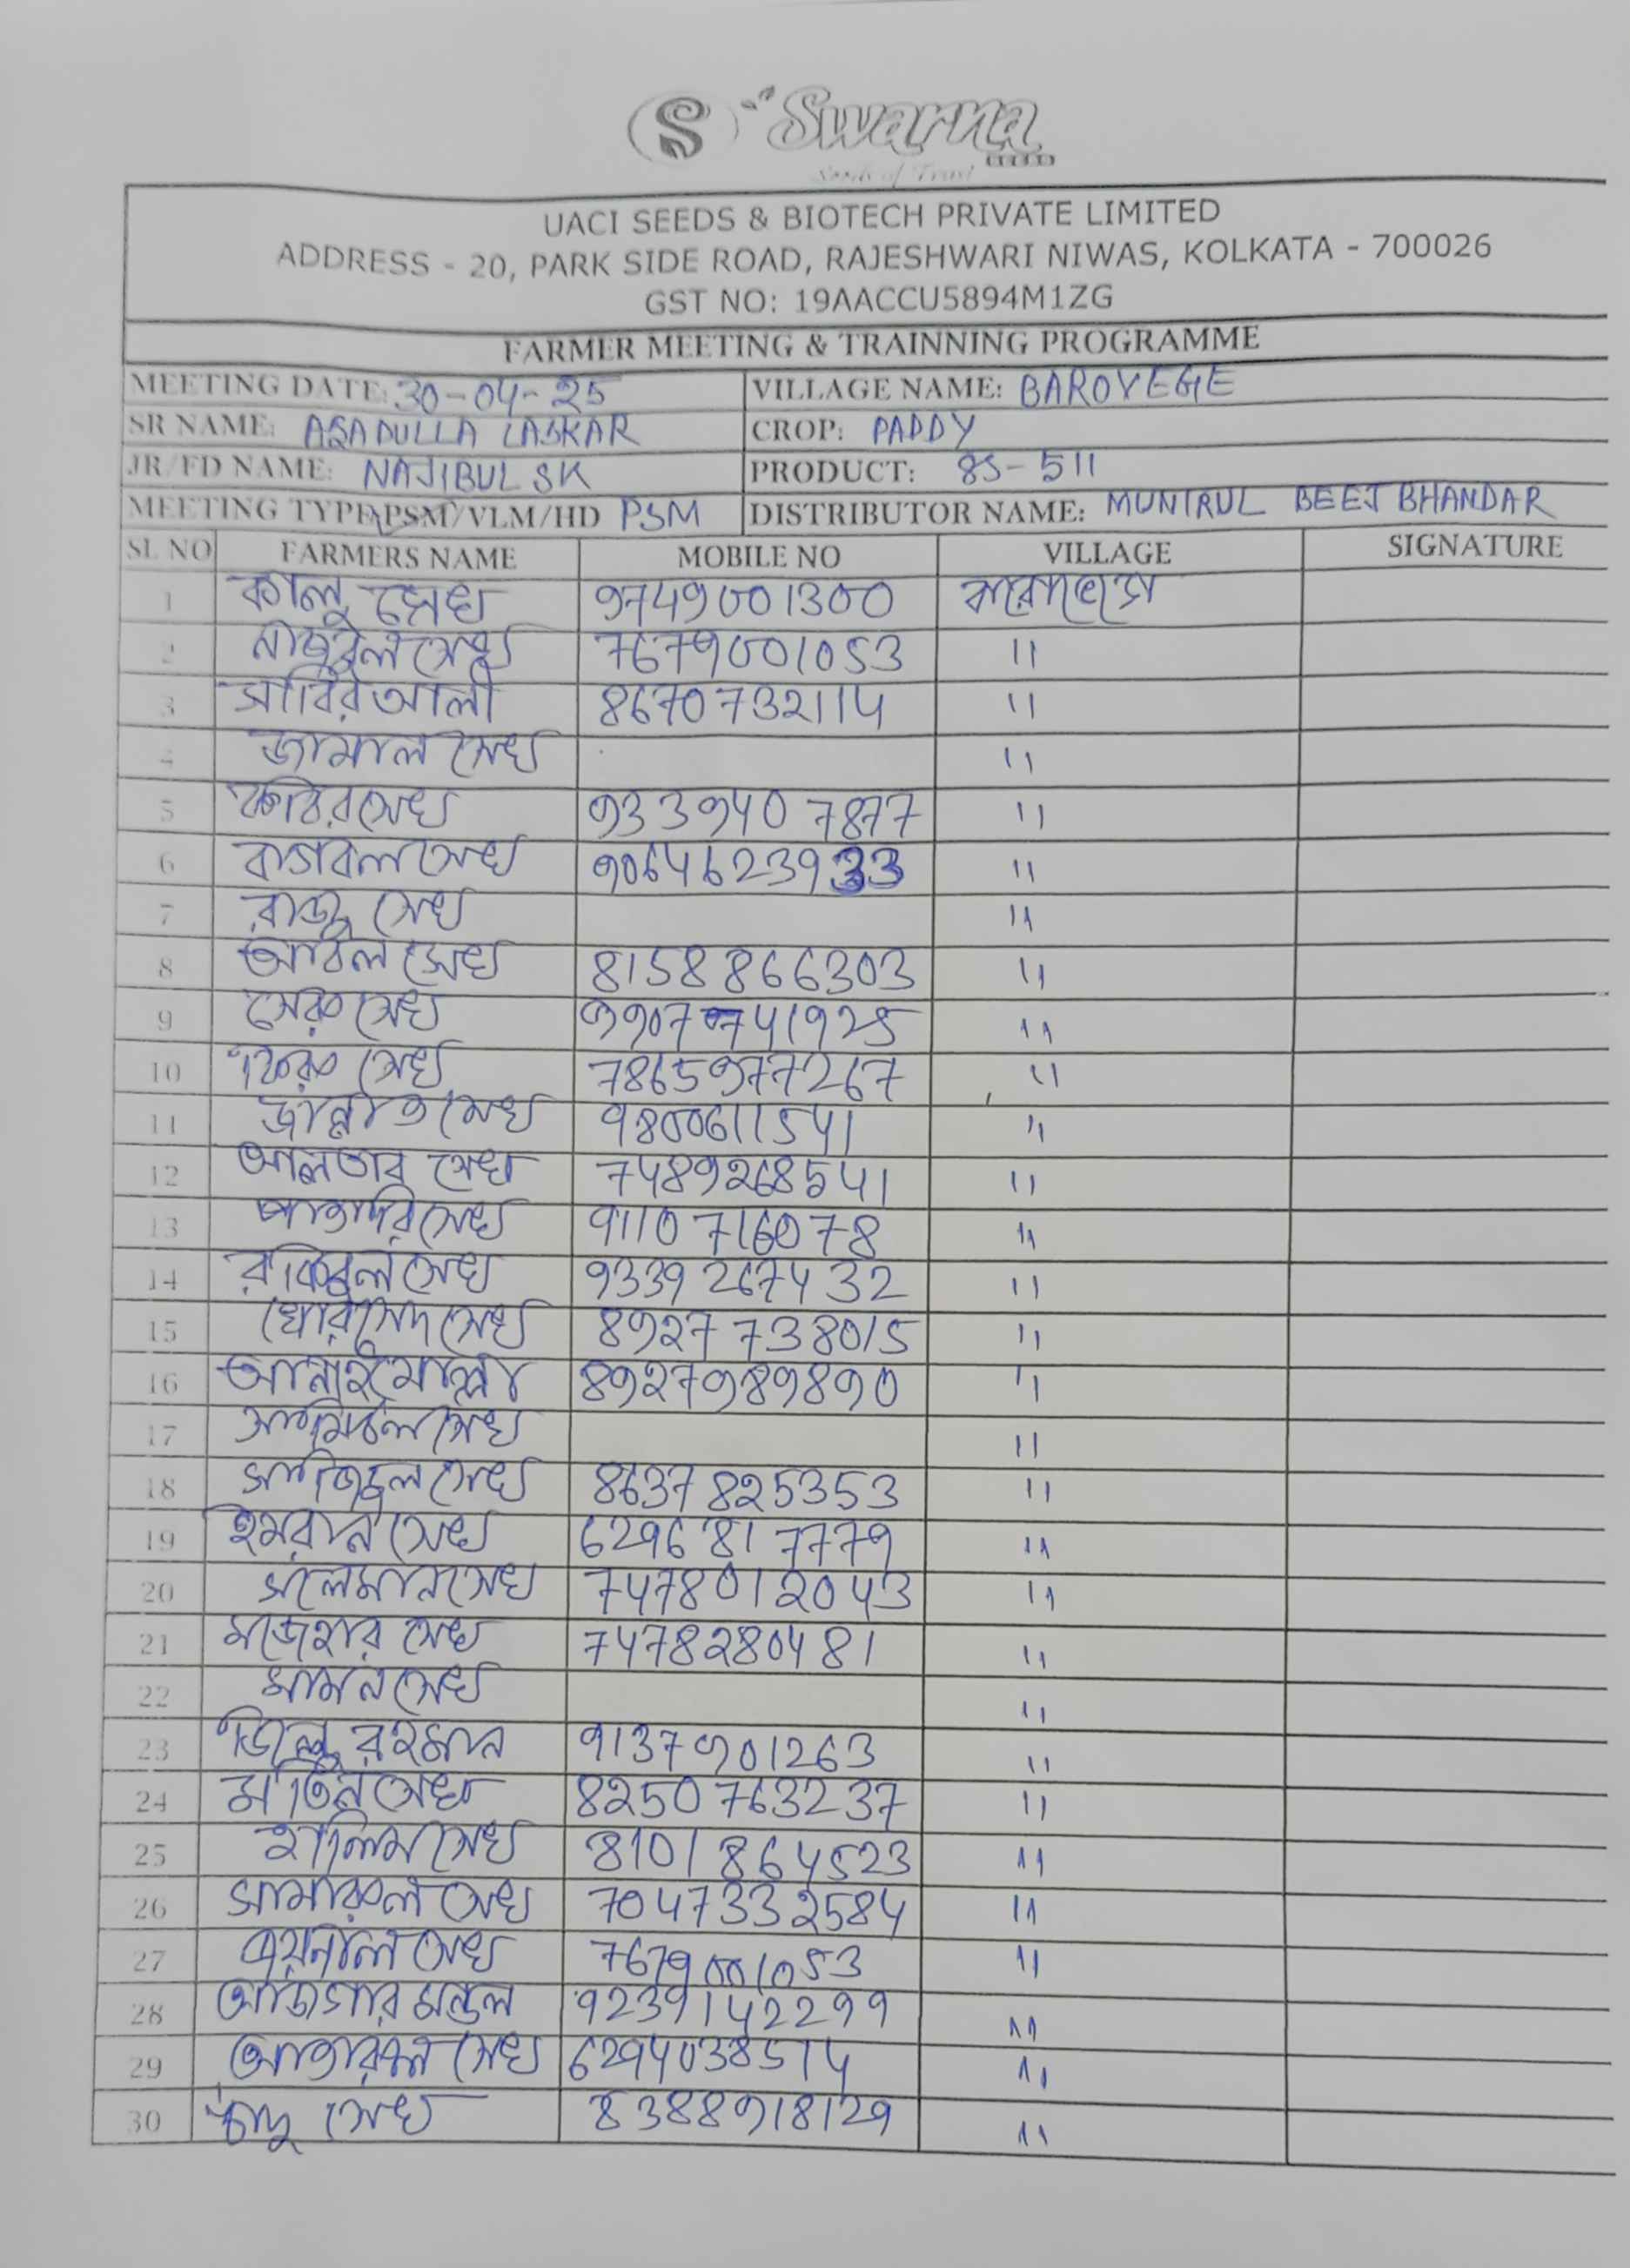 S Swarna
SEEDS
Seeds of Trust
UACI SEEDS & BIOTECH PRIVATE LIMITED
ADDRESS - 20, PARK SIDE ROAD, RAJESHWARI NIWAS, KOLKATA - 700026
GST NO: 19AACCU5894M1ZG
FARMER MEETING & TRAINNING PROGRAMME
MEETING DATE: 30-04-25 VILLAGE NAME: BAROYEGE
SR NAME: ASADULLA LASKAR CROP: PADDY
JR/FD NAME: NAJIBUL SK PRODUCT: 8S-511
MEETING TYPE PSM/VLM/HD PSM DISTRIBUTOR NAME: MUNIRUL BEEJ BHANDAR
SL NO FARMERS NAME MOBILE NO VILLAGE SIGNATURE
1 কালু সেখ 9749001300
2 সেখ 7679001053 11
3 সাবির আলী 8670732114 11
4 জামাল সেখ 11
5 সেখ 9339407877 11
6 সেখ 9064623933 11
7 রাজু সেখ 11
8 সেখ 8158866303 11
9 সেরু সেখ 11
10 সেখ 7865977267 11
11 জান্নাত সেখ 9800611541 11
12 আলতাব সেখ 7489268541 11
13 সেখ 9110716078 11
14 রকিবুল সেখ 9339267432 11
15 খোরসেদ সেখ 8927738015 11
16 মোল্লা 8927989890 11
17 সেখ 11
18 সাজিবুল সেখ 8637825353 11
19 ইমরান সেখ 6296817779 11
20 সলেমান সেখ 7478012043 11
21 মজেহার সেখ 7478280481 11
22 সামান সেখ 11
23 রহমান 9137901263 11
24 মতিন সেখ 8250763237 11
25 হালিম সেখ 8101864523 11
26 সামারুল সেখ 7047332584 11
27 সেখ 7679001053 11
28 আজগার মন্ডল 9239142299 11
29 সেখ 6294038514 11
30 সেখ 8388918129 11